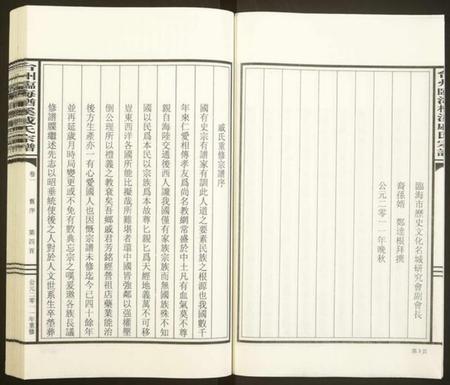 臨海市歷史文化名城研究會副會長
裔孫婿 鄭達根拜撰
公元二零一一年晚秋
第3頁
台州臨海
戚氏宗譜
卷一
舊序
第四頁
公元二零一一年重修
戚氏重修宗譜序
國有史宗有譜家有訓此人道之要素民族之根源也我國數千
年來仁愛相傳孝友爲尚名教綱常盛於中土凡有血氣莫不尊
親自海陸交通後西人譏我國僅有家族宗族而無國族殊不知
國以民爲本民以宗族爲本故尊七親七爲天經地義萬不可移
豈東西洋各國所能比擬哉所難堪者環中國皆強鄰以強權壓
倒公理所以禮義之教衰矣吾鄉戚君芳銘經營祖店藥業能治
後方生產亦一有心愛國人也因慨宗譜未修迄今已四十餘年
並再延歲月時局變更或不免有數典忘宗之嘆爰邀各族長議
修譜牒繼述先志以昭垂統使後之人對於人文世系生卒塋葬